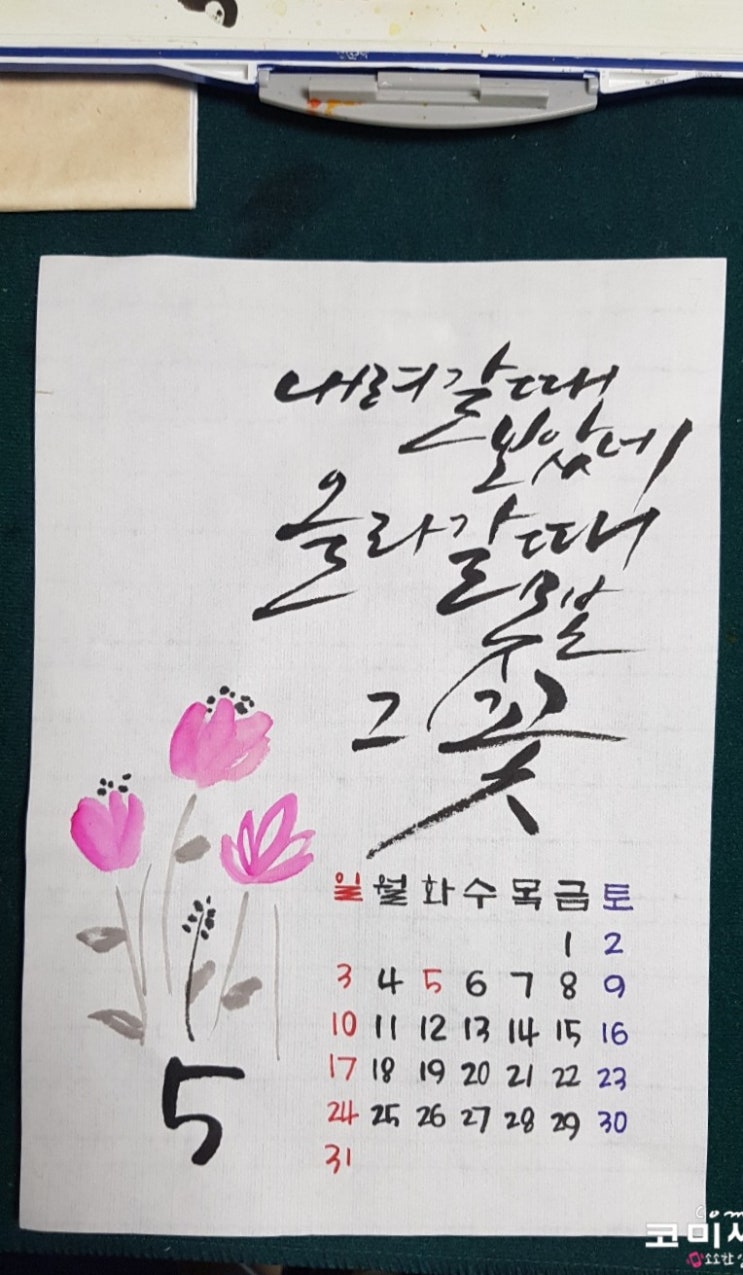 내려갈때
보았네
올라갈때
못본
그 꽃
일 월 화 수 목 금 토
1 2
3 4 5 6 7 8 9
10 11 12 13 14 15 16
17 18 19 20 21 22 23
24 25 26 27 28 29 30
31
5